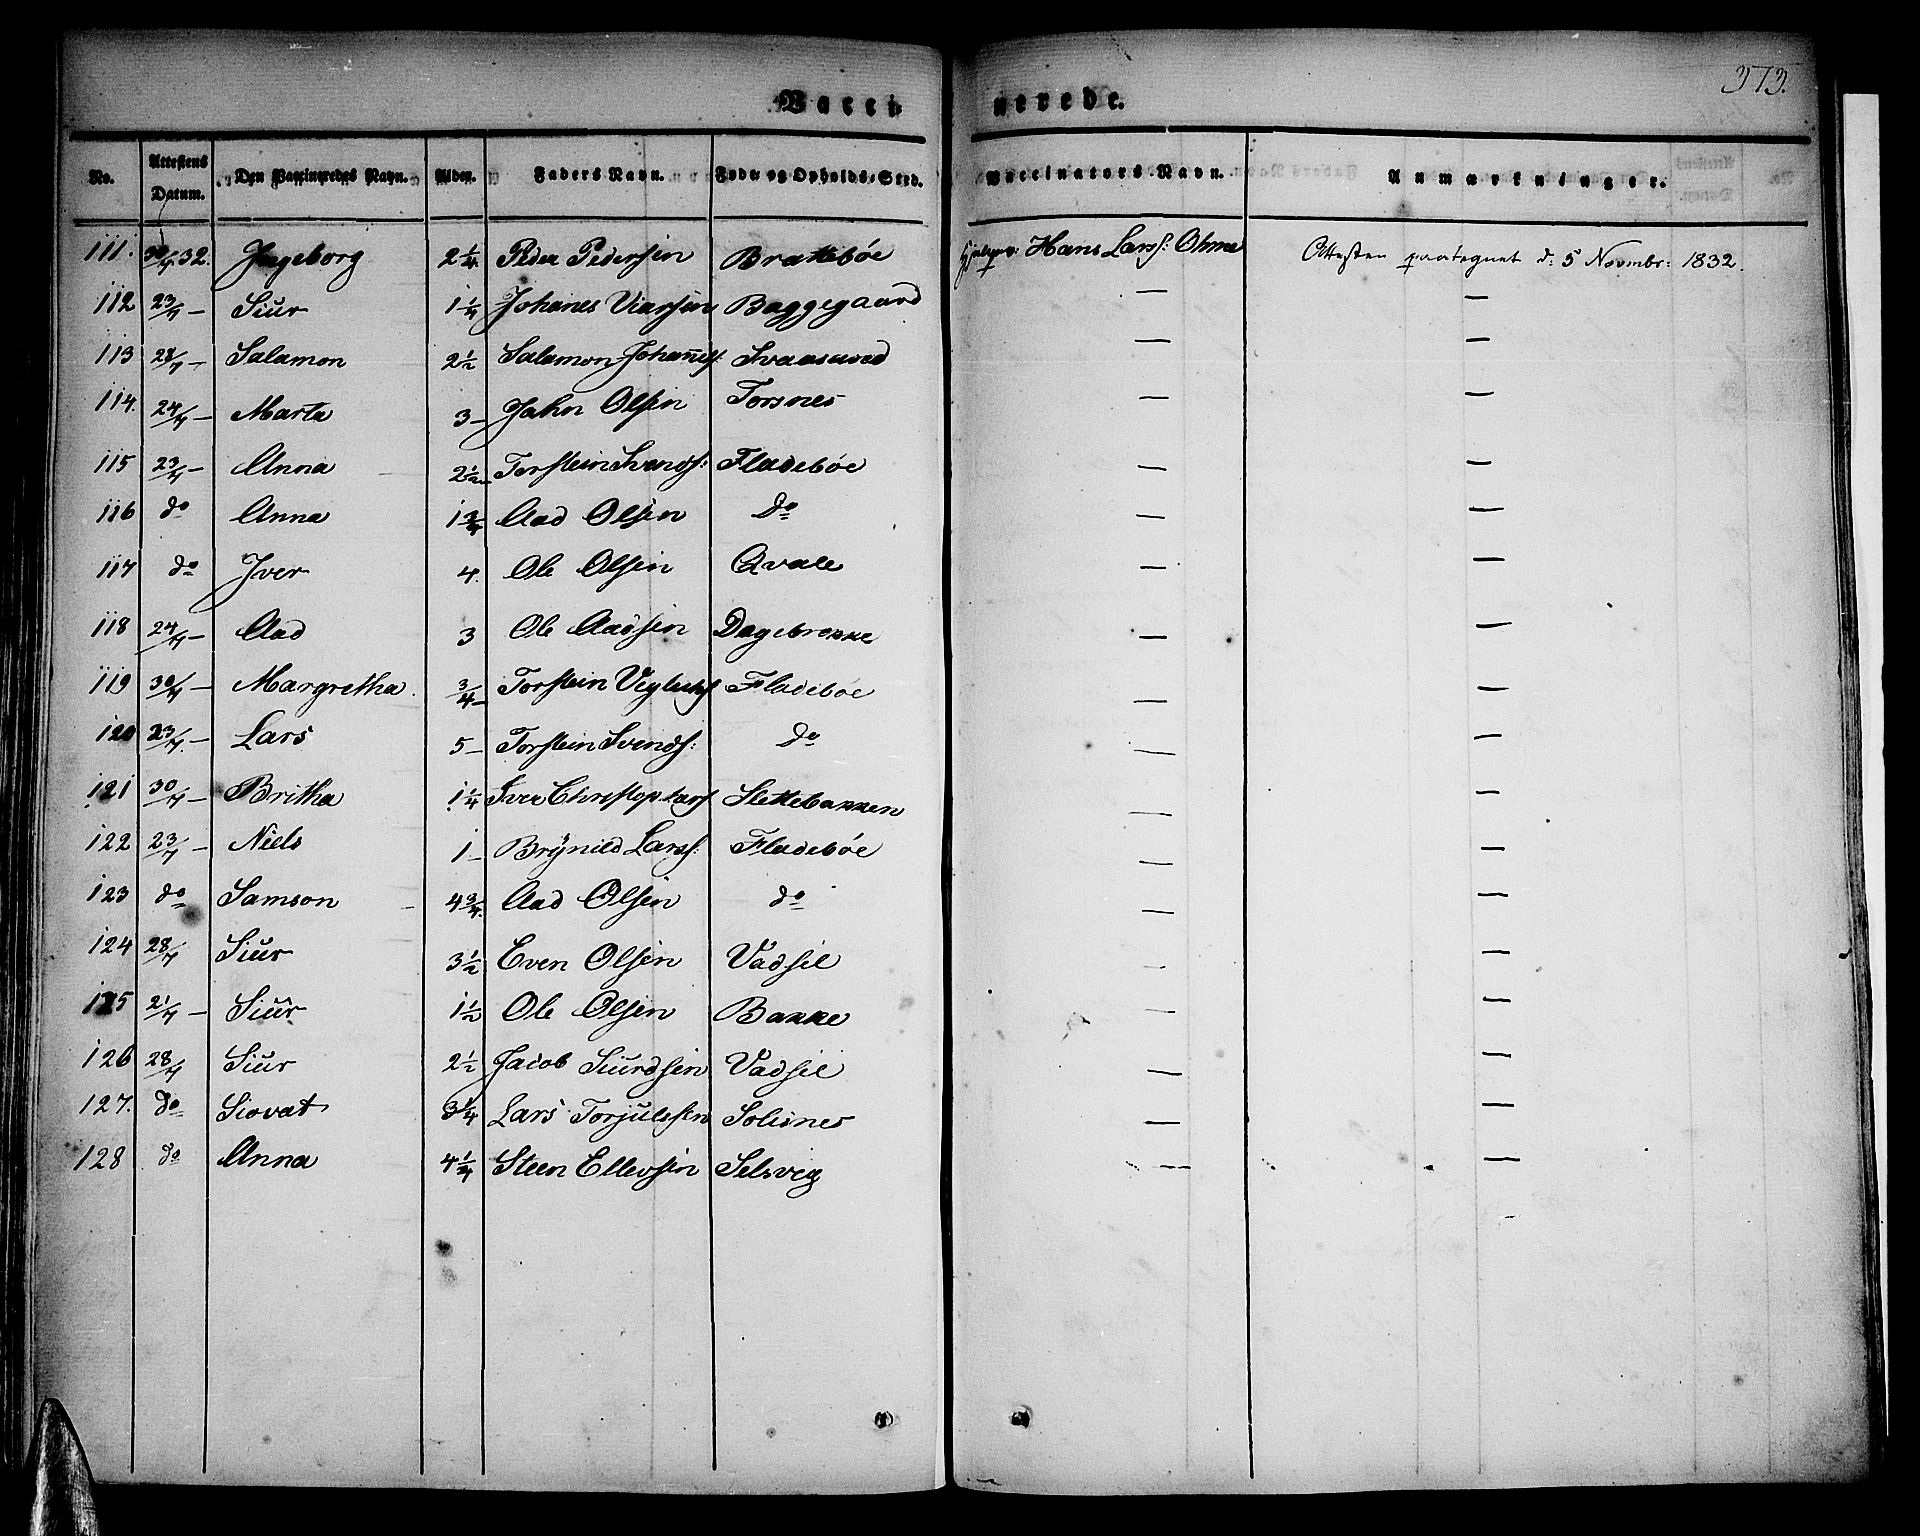 373.
Vacci nerede.
No. Attestens Datum. Den Vaccineredes Navn. Alder. Faders Navn. Føde- og Opholds-Sted. Vaccinators Navn. Anmærkninger.
111. 30/7 32. Ingeborg 2 1/4 Peder Pedersen Brattebøe Hans Larss: Ohme Attesten paategnet d: 5 Novembr: 1832.
112 23/7 — Siur 1 1/4 Johanes Viarsen Baggegaard — —
113 28/7 — Salamon 2 1/2 Salamon Johannes: Svaasand — —
114. 24/7 — Marta 3 — Jahn Olsen Torsnes — —
115 23/7 — Anna 2 1/2 Torstein Svends: Fladebøe — —
116 do Anna 1 3/4 Aad Olsen Do — —
117 do Iver 4. Ole Olsen Qvale — —
118 24/7 — Aad 3 Ole Aadsen Dagebrekke — —
119 30/7 — Margretha. 3/4 — Torstein Fladebøe — —
120 23/7. — Lars 5 — Torstein Svends: do — —
121 30/7 — Britha 1 1/4 Iver Christophers Slettebakken — —
122 23/7 — Niels 1 — Brÿnild Larss: Fladebøe — —
123 do Samson 4 3/4. Aad Olsen do — —
124 28/7 Siur 3 1/2 Even Olsen Vadsel — —
125 21/7 — Siur 1 1/2 Ole Olsen Bakke —
126 28/7 Siur 2 1/2 Jacob Siurdsen Vadsel — —
127. do Siovat 3 1/4 Lars Torjulssen Solesnes — —
128 do Anna 4 1/4 Steen Ellevsen Selsvig — —